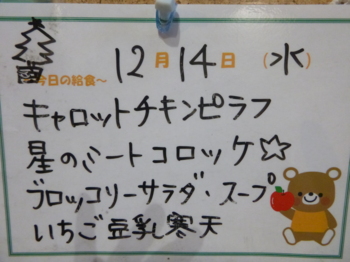 12月14日(水)
今日の給食～
キャロットチキンピラフ
星のミートコロッケ☆
ブロッコリーサラダ・スープ
いちご豆乳寒天